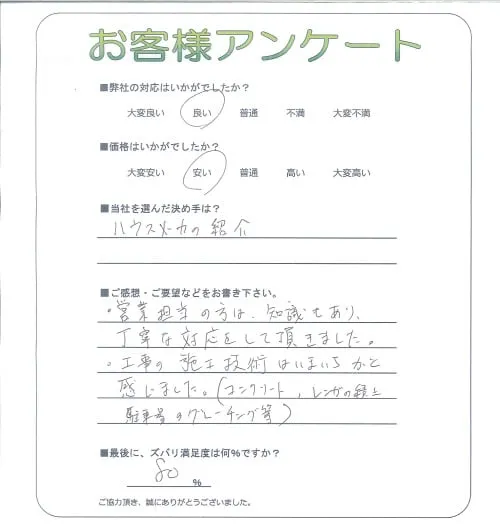 お客様アンケート
■弊社の対応はいかがでしたか？
大変良い 良い 普通 不満 大変不満
■価格はいかがでしたか？
大変安い 安い 普通 高い 大変高い
■当社を選んだ決め手は？
ハウスメーカの紹介
■ご感想・ご要望などをお書き下さい。
・営業担当の方は、知識もあり、
丁寧な対応をして頂きました。
・工事の施工技術はいまいちかと
感じました。(コンクリート、レンガの積上
駐車場のグレーチング等)
■最後に、ズバリ満足度は何％ですか？
80 %
ご協力頂き、誠にありがとうございました。